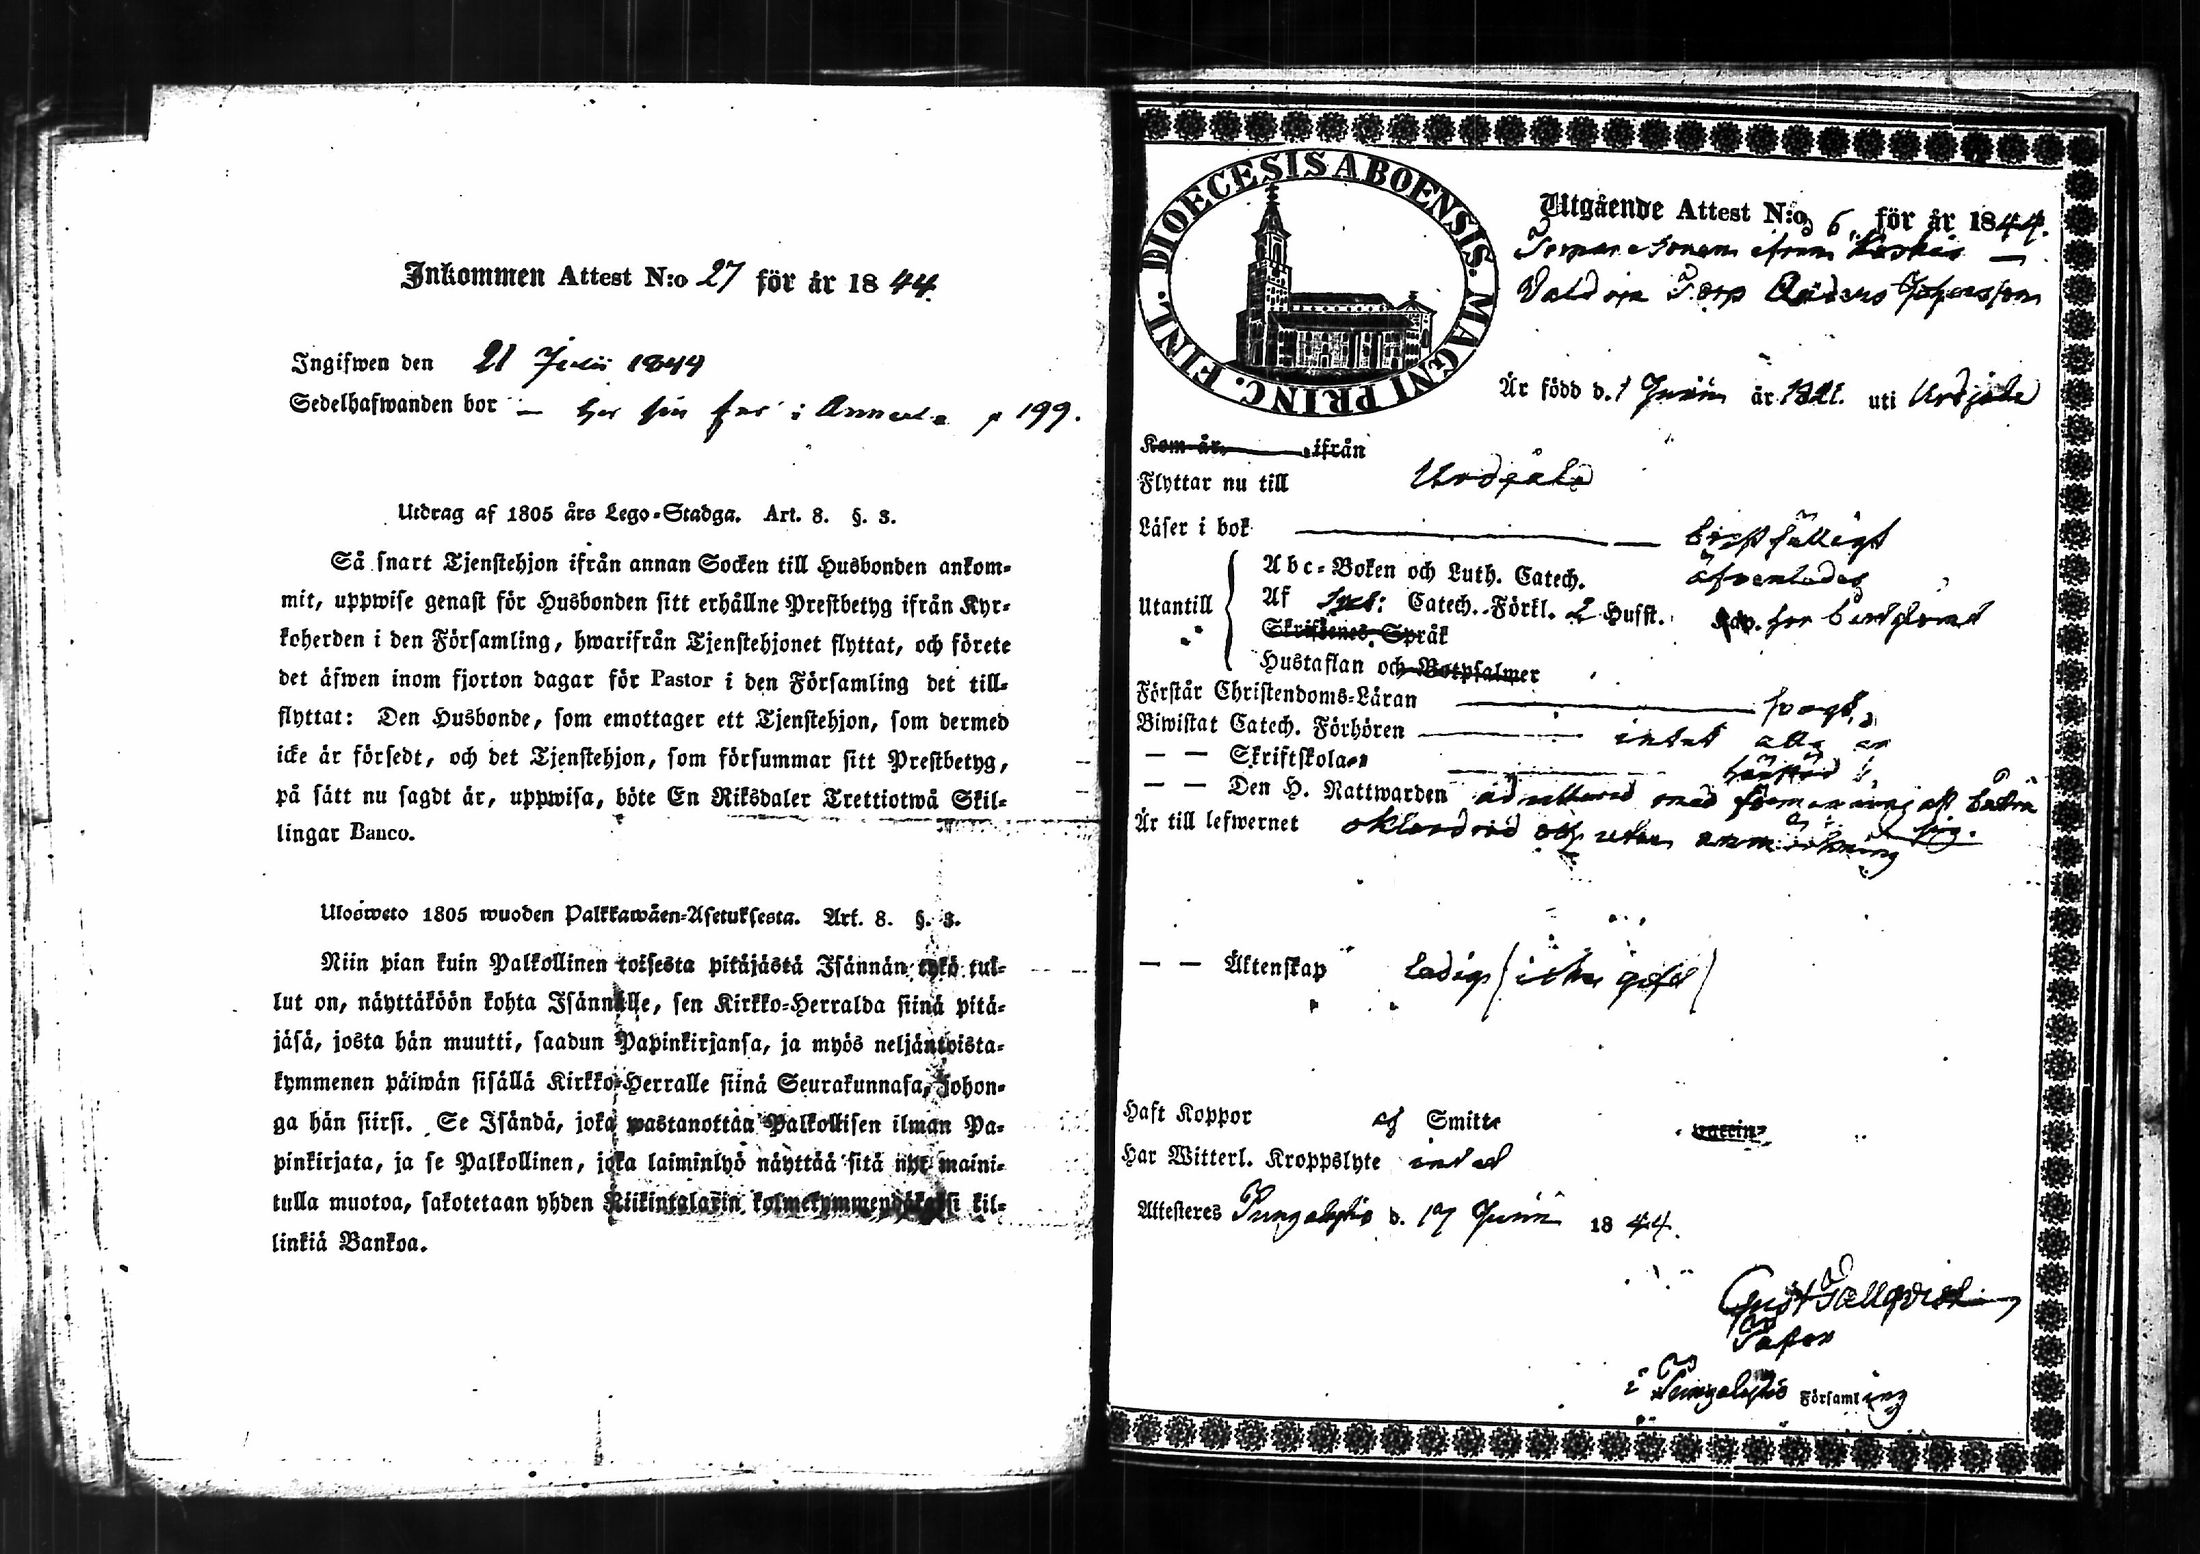 Inkommen Attest N:o 27 för år 1844.
Ingifwen den 21 Julii 1844
Sedelhafwanden bor — hos sin far i Annula p 199.
Utdrag af 1805 års Lego-Stadga. Art. 8. §. 3.
Så snart Tjenstehjon ifrån annan Socken till Husbonden ankom-
mit, uppwise genast för Husbonden sitt erhållne Prestbetyg ifrån Kyr-
koherden i den Församling, hwarifrån Tjenstehjonet flyttat, och förete
det äfwen inom fjorton dagar för Pastor i den Församling det till-
flyttat: Den Husbonde, som emottager ett Tjenstehjon, som dermed
icke är försedt, och det Tjenstehjon, som försummar sitt Prestbetyg,
på sätt nu sagdt är, uppwisa, böte En Riksdaler Trettiotwå Skil-
lingar Banco.
Ulosweto 1805 wuoden Palkkawäen-Asetuksesta. Art. 8. §. 3.
Niin pian kuin Palkollinen toisesta pitäjästä Isännän tykö tul-
lut on, näyttäköön kohta Isännälle, sen Kirkko-Herralda siinä pitä-
jäsä, josta hän muutti, saadun Papinkirjansa, ja myös neljäntoista-
kymmenen päiwän sisällä Kirkko-Herralle siinä Seurakunnasa, johon-
ga hän siirsi. Se Isändä, joka wastanottaa Palkollisen ilman Pa-
pinkirjata, ja se Palkollinen, joka laiminlyö näyttää sitä nyt maini-
tulla muotoa, sakotetaan yhden Riikintalarin kolmekymmendäkaksi kil-
linkiä Bankoa.
DIOECESIS ABOENSIS. MAGNI PRINC. FINL.
Utgående Attest N:o 6. för år 1844.
Torpare Sonen ifrån Koskis —
Torp Anders Johansson
Är född d. 1 Junii år 1821. uti Urdjala
Kom år ifrån
Flyttar nu till Urdjala
Läser i bok — bristfälligt
Utantill
Abc-Boken och Luth. Catech. äfvenledes
Af Catech. Förkl. 2 Husst.
Skriftenes Språk
Hustaflan och Botpsalmer
Förstår Christendoms-Läran — svagt,
Biwistat Catech. Förhören — intet
— — Skriftskolan
— — Den H. Nattwarden admitterad med förmaning att bättra sig.
Är till lefwernet oklandrad och utan anmärkning
— — Äktenskap Ledig (icke gift)
Haft Koppor af Smitte vaccin-
Har Witterl. Kroppslyte intet
Attesteres Pungalaitio d. 17 Junii 1844.
Gust Tallqvist
Pastor
i Pungalaitio Församling